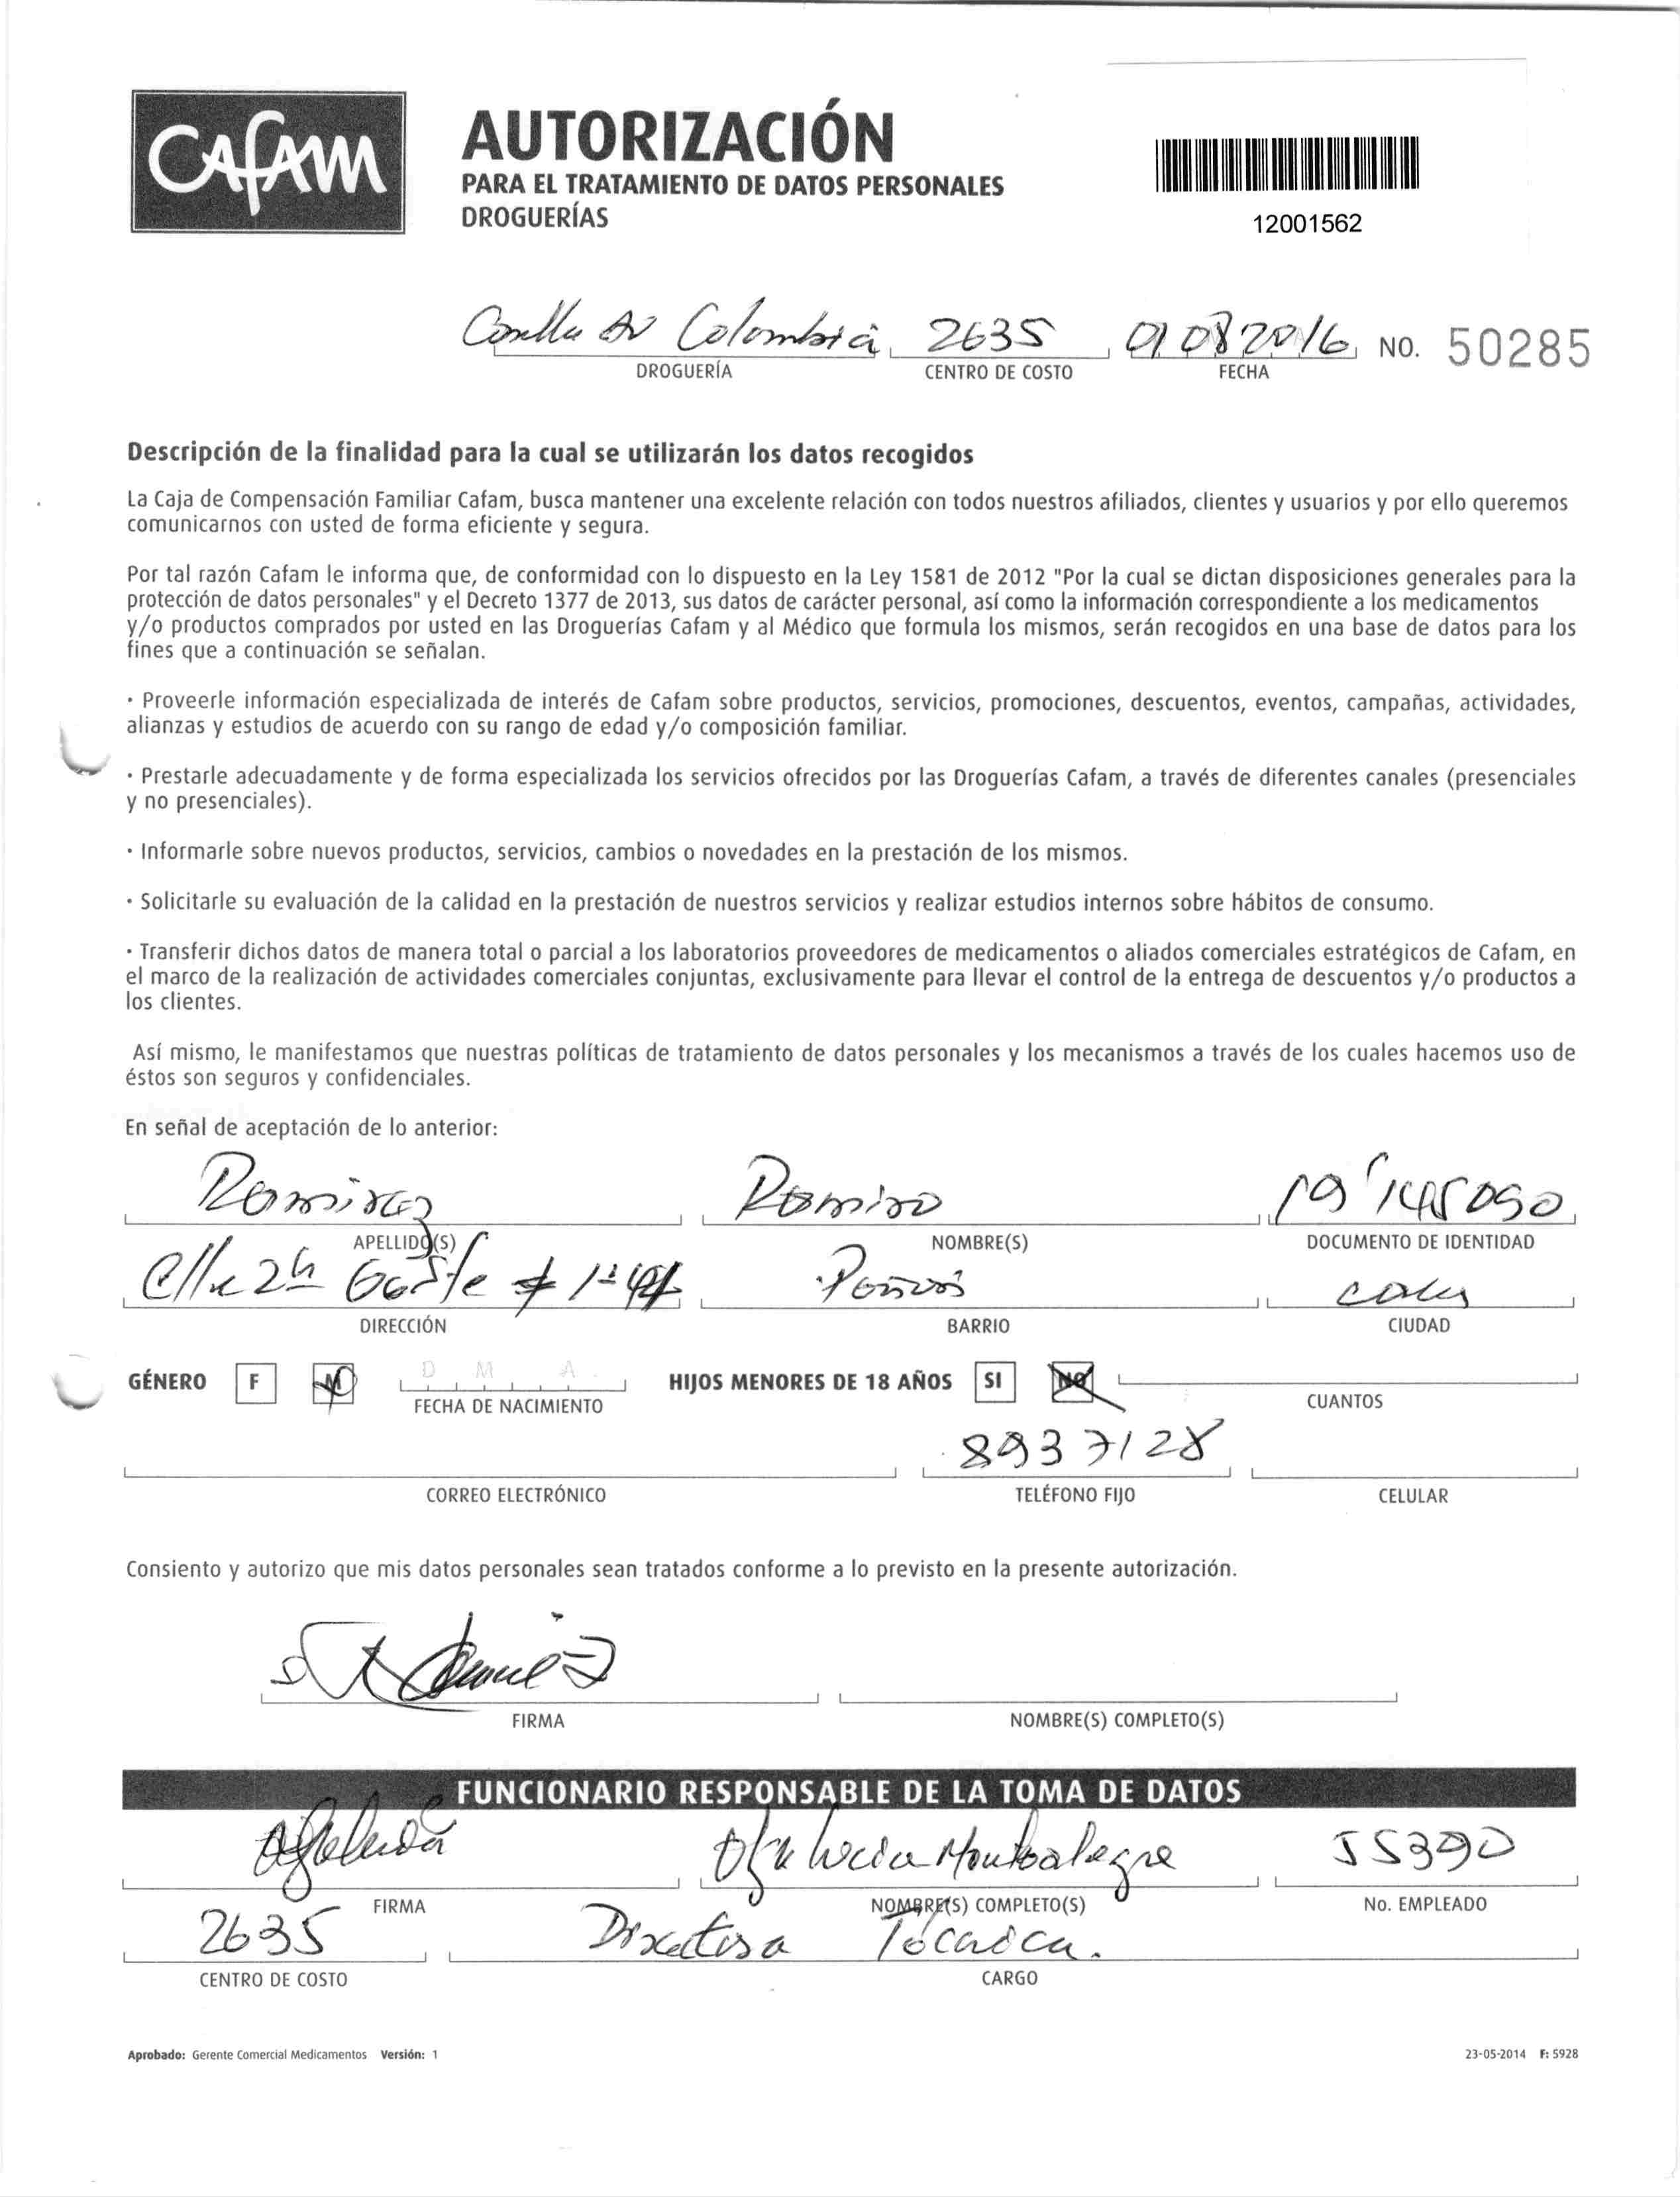 CAFAM
AUTORIZACIÓN
PARA EL TRATAMIENTO DE DATOS PERSONALES
DROGUERÍAS
12001562
Av Colombia 2635 01 08 2016 NO. 50285
DROGUERÍA CENTRO DE COSTO FECHA
Descripción de la finalidad para la cual se utilizarán los datos recogidos
La Caja de Compensación Familiar Cafam, busca mantener una excelente relación con todos nuestros afiliados, clientes y usuarios y por ello queremos
comunicarnos con usted de forma eficiente y segura.
Por tal razón Cafam le informa que, de conformidad con lo dispuesto en la Ley 1581 de 2012 "Por la cual se dictan disposiciones generales para la
protección de datos personales" y el Decreto 1377 de 2013, sus datos de carácter personal, así como la información correspondiente a los medicamentos
y/o productos comprados por usted en las Droguerías Cafam y al Médico que formula los mismos, serán recogidos en una base de datos para los
fines que a continuación se señalan.
· Proveerle información especializada de interés de Cafam sobre productos, servicios, promociones, descuentos, eventos, campañas, actividades,
alianzas y estudios de acuerdo con su rango de edad y/o composición familiar.
· Prestarle adecuadamente y de forma especializada los servicios ofrecidos por las Droguerías Cafam, a través de diferentes canales (presenciales
y no presenciales).
· Informarle sobre nuevos productos, servicios, cambios o novedades en la prestación de los mismos.
· Solicitarle su evaluación de la calidad en la prestación de nuestros servicios y realizar estudios internos sobre hábitos de consumo.
· Transferir dichos datos de manera total o parcial a los laboratorios proveedores de medicamentos o aliados comerciales estratégicos de Cafam, en
el marco de la realización de actividades comerciales conjuntas, exclusivamente para llevar el control de la entrega de descuentos y/o productos a
los clientes.
Así mismo, le manifestamos que nuestras políticas de tratamiento de datos personales y los mecanismos a través de los cuales hacemos uso de
éstos son seguros y confidenciales.
En señal de aceptación de lo anterior:
Ramirez Ramiro
APELLIDO(S) NOMBRE(S) DOCUMENTO DE IDENTIDAD
Clle 2a Oeste #
DIRECCIÓN BARRIO CIUDAD
GÉNERO F M D M A HIJOS MENORES DE 18 AÑOS SI NO
FECHA DE NACIMIENTO CUANTOS
8937128
CORREO ELECTRÓNICO TELÉFONO FIJO CELULAR
Consiento y autorizo que mis datos personales sean tratados conforme a lo previsto en la presente autorización.
FIRMA NOMBRE(S) COMPLETO(S)
FUNCIONARIO RESPONSABLE DE LA TOMA DE DATOS
Lucia Montealegre 55390
FIRMA NOMBRE(S) COMPLETO(S) No. EMPLEADO
2635 Directora Técnica.
CENTRO DE COSTO CARGO
Aprobado: Gerente Comercial Medicamentos Versión: 1 23-05-2014 F: 5928